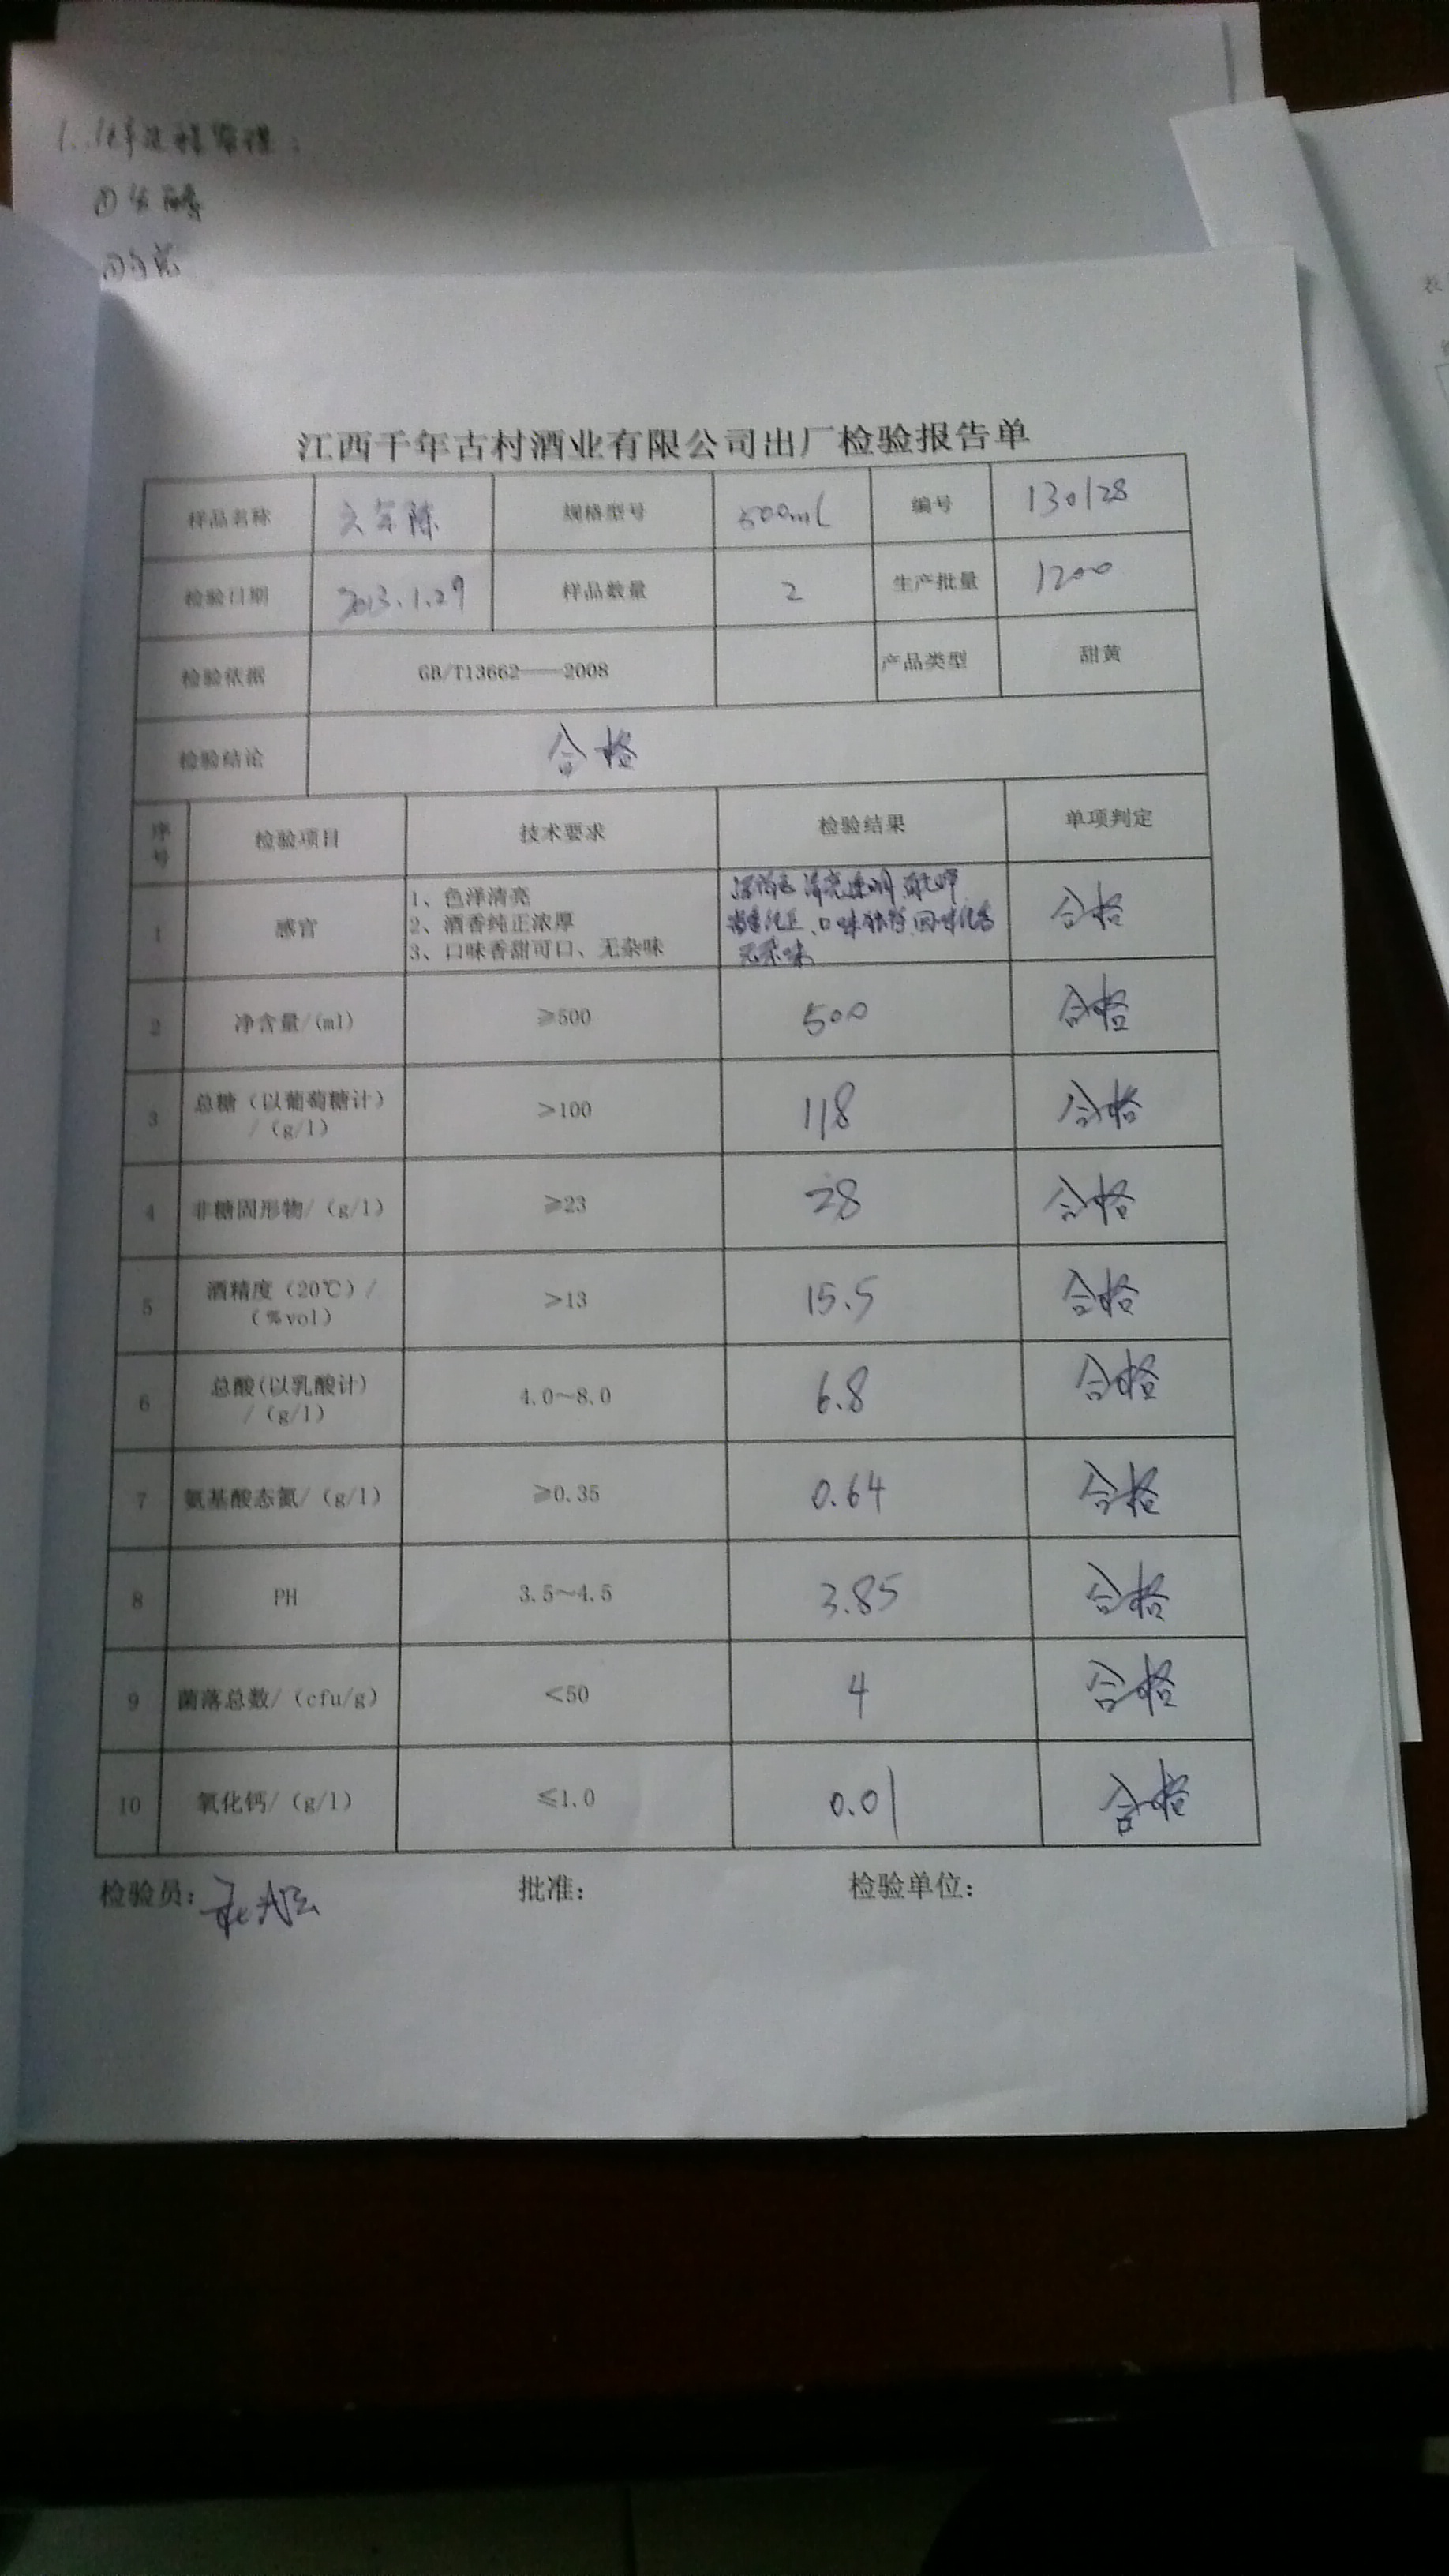 ①发酵
江西千年古村酒业有限公司出厂检验报告单
样品名称 六年陈 规格型号 500ml 编号 130128
检验日期 2013.1.29 样品数量 2 生产批量 1200
检验依据 GB/T13662——2008 产品类型 甜黄
检验结论 合格
序号 检验项目 技术要求 检验结果 单项判定
1 感官 1、色泽清亮 2、酒香纯正浓厚 3、口味香甜可口、无杂味 清亮透明 无杂味 合格
2 净含量/(ml) ≥500 500 合格
3 总糖（以葡萄糖计）/（g/l） >100 118 合格
4 非糖固形物/（g/l） ≥23 28 合格
5 酒精度（20℃）/（%vol） >13 15.5 合格
6 总酸(以乳酸计)/（g/l） 4.0~8.0 6.8 合格
7 氨基酸态氮/（g/l） ≥0.35 0.64 合格
8 PH 3.5~4.5 3.85 合格
9 菌落总数/（cfu/g） <50 4 合格
10 氧化钙/（g/l） ≤1.0 0.01 合格
检验员： 批准： 检验单位：